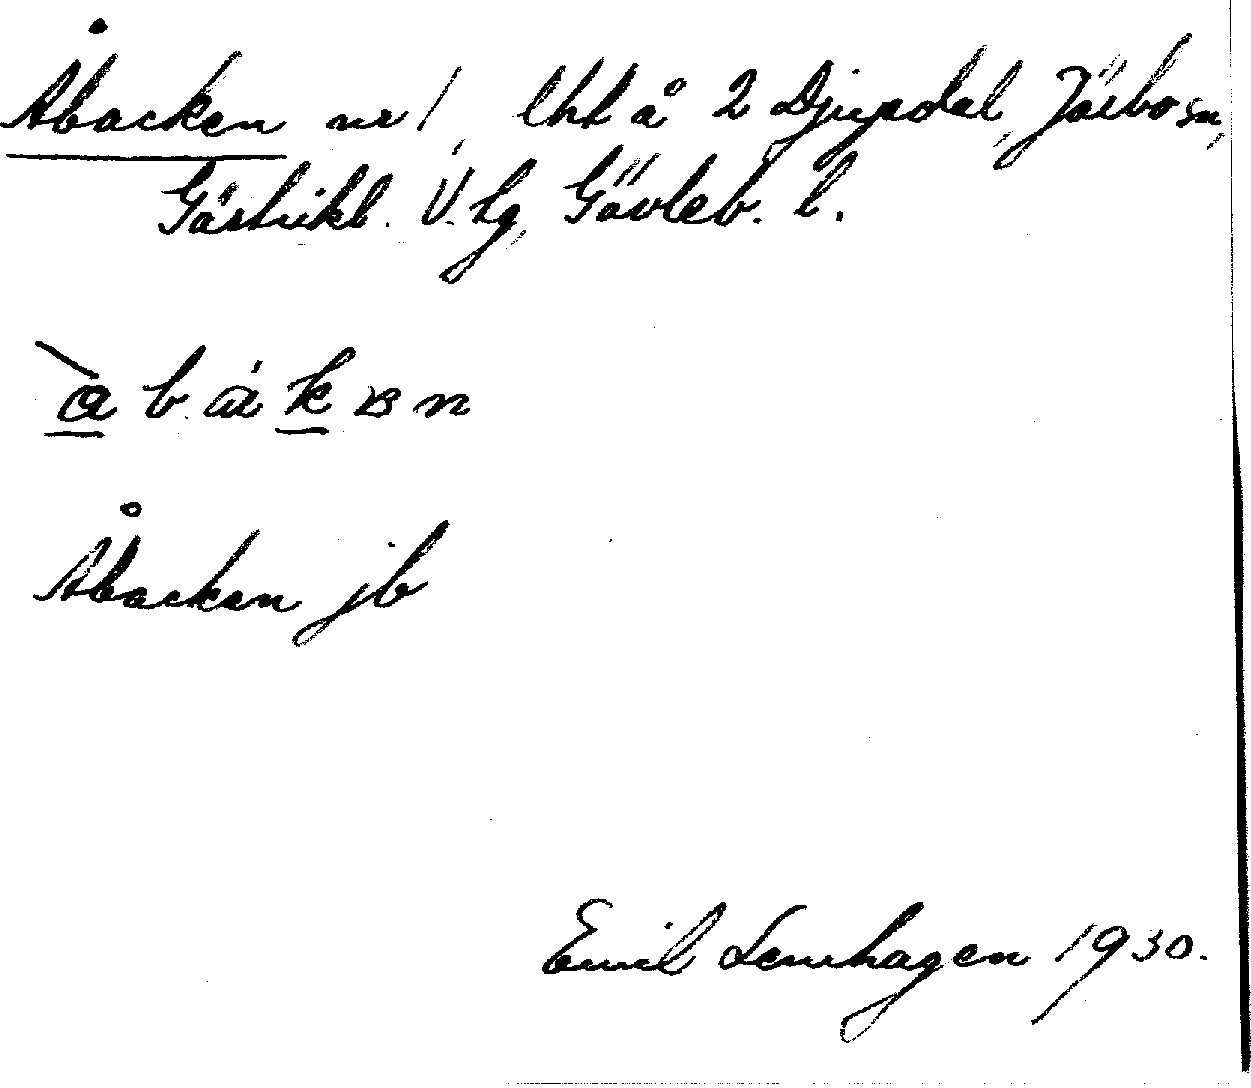 Åbacken nr 1, lht å 2 Djupdal, Järbo sn,
Gästrikl. V. hg, Gävleb. l.
Åbacken jb
Emil Lenhagen 1930.